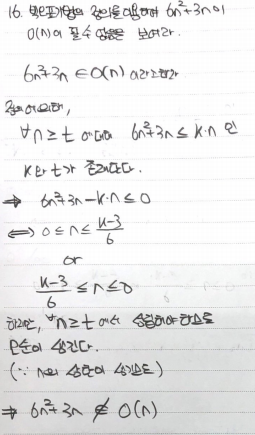 16. 빅오표기법의 정의를 이용하여 6n²+3n이
O(n)이 될 수 없음을 보여라.
6n²+3n ∈ O(n) 이라고 하자
정의에 의해,
∀n ≥ t 에 대해 6n²+3n ≤ k·n 인
k와 t가 존재한다.
⇒ 6n²+3n-k·n ≤ 0
⟺ 0 ≤ n ≤ (k-3)/6
or
(k-3)/6 ≤ n ≤ 0
하지만, ∀n ≥ t 에서 성립해야 하므로
모순이 생긴다.
(∵ n의 상한이 생기므로)
⇒ 6n²+3n ∉ O(n)